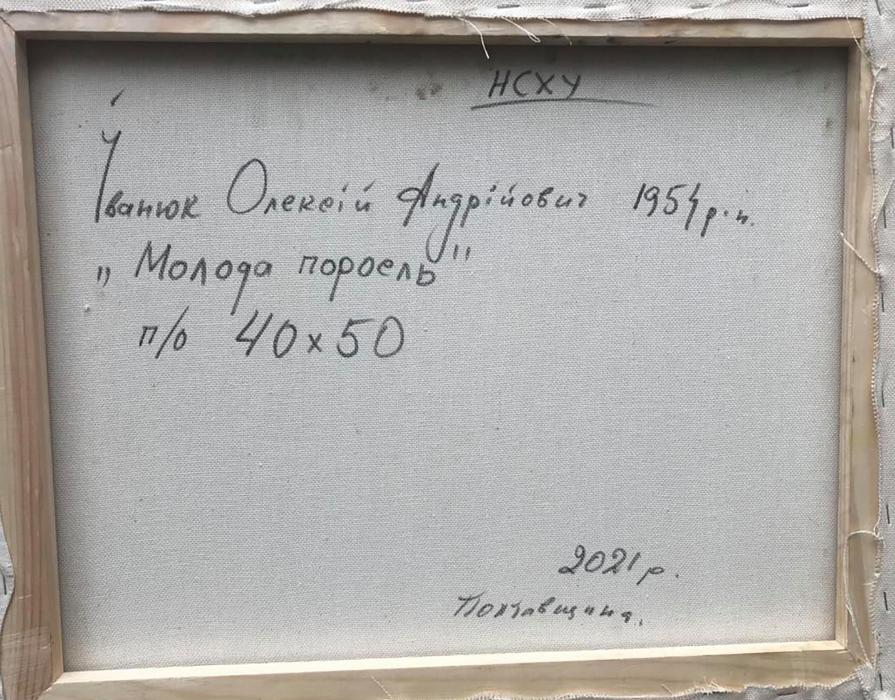 НСХУ
Іванюк Олексій Андрійович 1954 р.н.
„Молода поросль"
п/о 40x50
2021 р.
Полтавщина.